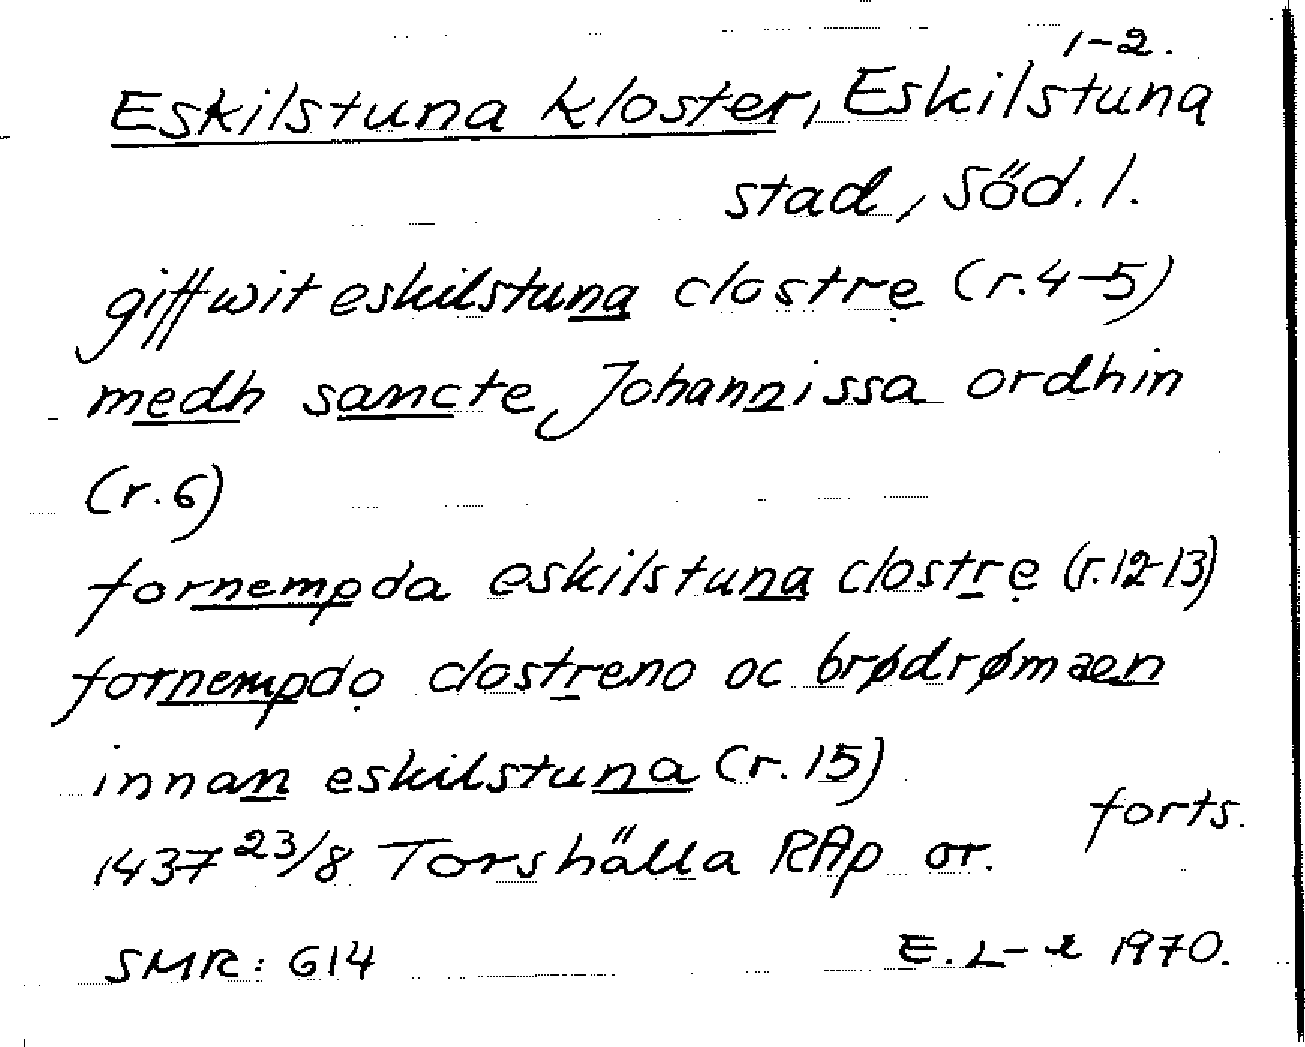 1-2.
Eskilstuna kloster, Eskilstuna
stad, Söd. l.
giff wit eskilstuna clostre (r.4-5)
medh sancte Johannissa ordhin
(r.6)
fornempda eskilstuna clostre (r.12-13)
fornempdo clostreno oc brødrømæn
innan eskilstuna (r.15)
forts.
1437 23/8 Torshälla RAp or.
SMR: 614 E. L-r 1970.